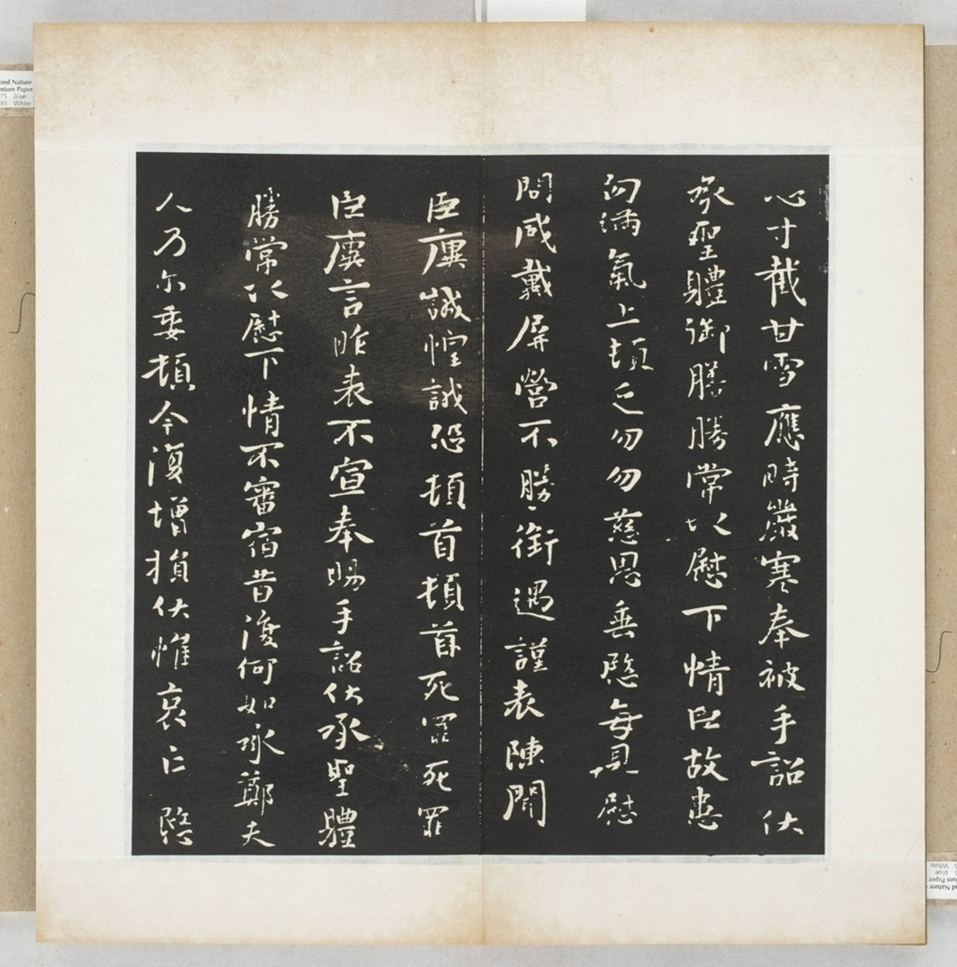 心寸截甘雪應時嚴寒奉被手詔伏
承聖體御膳勝常以慰下情臣故患
匈滿氣上頓乏勿勿慈恩垂愍每見慰
問感戴屏營不勝銜遇謹表陳聞
臣廙誠惶誠恐頓首頓首死罪死罪
臣廙言昨表不宣奉賜手詔伏承聖體
勝常以慰下情不審宿昔復何如承鄭夫
人乃爾委頓今復增損伏惟哀亡愍
Nature
Paper
Blue
White